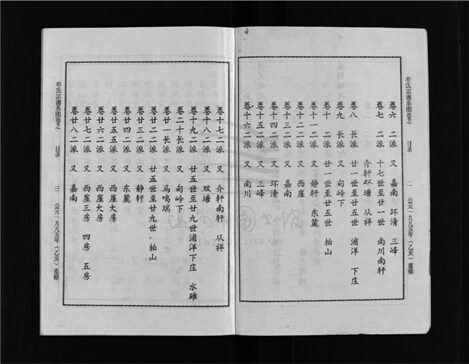 牟氏宗谱系图卷之 目录 二 公元一九九五年(乙亥)重修
卷六 二派 又 嘉南 环清 三峰
卷七 二派 十七世至廿一世 南川南轩
介轩双塘 从祥
卷八 长派 廿一世至廿五世 浦洋 下庄
卷九 长派 又 句岭下
卷十 二派 廿一世至廿五世 柏山
卷十一 二派 又 静轩 东麓
卷十二 二派 又
卷十三 二派 又 嘉南
卷十四 二派 又 环清
卷十五 二派 又 三峰
卷十六 二派 又 南川
卷十七 二派 又 介轩南轩 从祥
卷十八 二派 又 双塘
卷十九 二派 廿五世至廿九世 浦洋下庄 水碓
卷二十 长派 又 句岭下
卷廿一 长派 又 马鸣瑞
卷廿二 二派 廿五世至廿九世 柏山
卷廿三 二派 又 静轩
卷廿四 二派 又 东麓
卷廿五 二派 又 西崖长房
卷廿六 二派 又 西崖大房
卷廿七 二派 又 西崖三房 四房 五房
卷廿八 二派 又 嘉南
牟氏宗谱系图卷之 目录 三 公元一九九五年(乙亥)重修